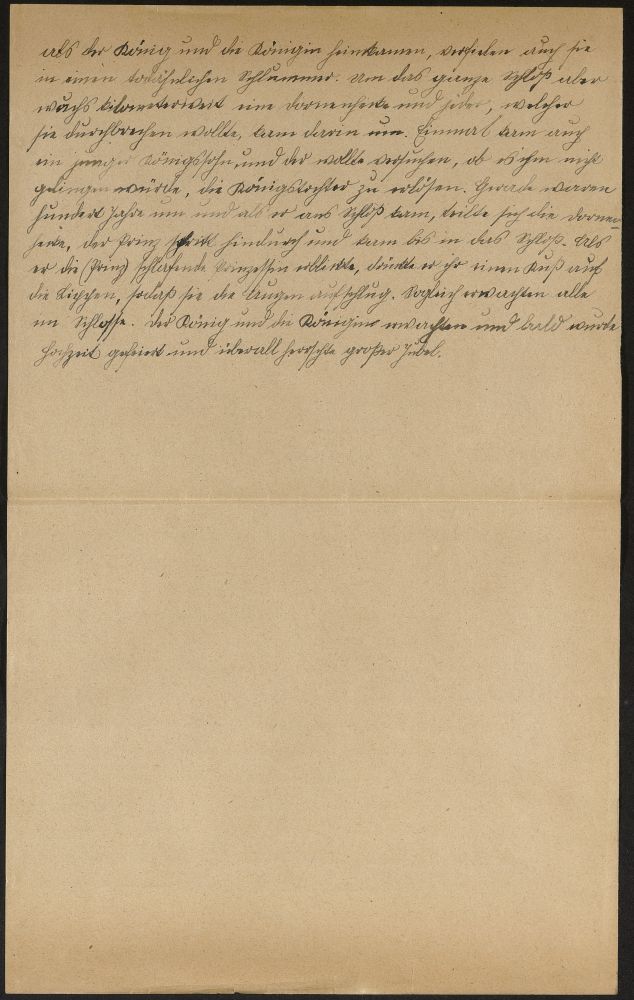 als der König und die Königin heimkamen, verfielen auch sie
in einen todähnlichen Schlummer. Um das ganze Schloß aber
wuchs kilometerweit eine Dornenhecke und jeder, welcher
sie durchbrechen wollte, kam darin um. Einmal kam auch
ein junger Königssohn, und der wollte versuchen, ob es ihm nicht
gelingen würde, die Königstochter zu erlösen. Gerade waren
hundert Jahre um und als er ans Schloß kam, teilte sich die Dornen-
hecke, der Prinz schritt hindurch und kam bis in das Schloß. Als
er die (Prinz) schlafende Prinzessin erblickte, drückte er ihr einen Kuß auf
die Lippen, sodaß sie die Augen aufschlug. Sogleich erwachten alle
im Schlosse. Der König und die Königin erwachten und bald wurde
Hochzeit gefeiert und überall herrschte großer Jubel.